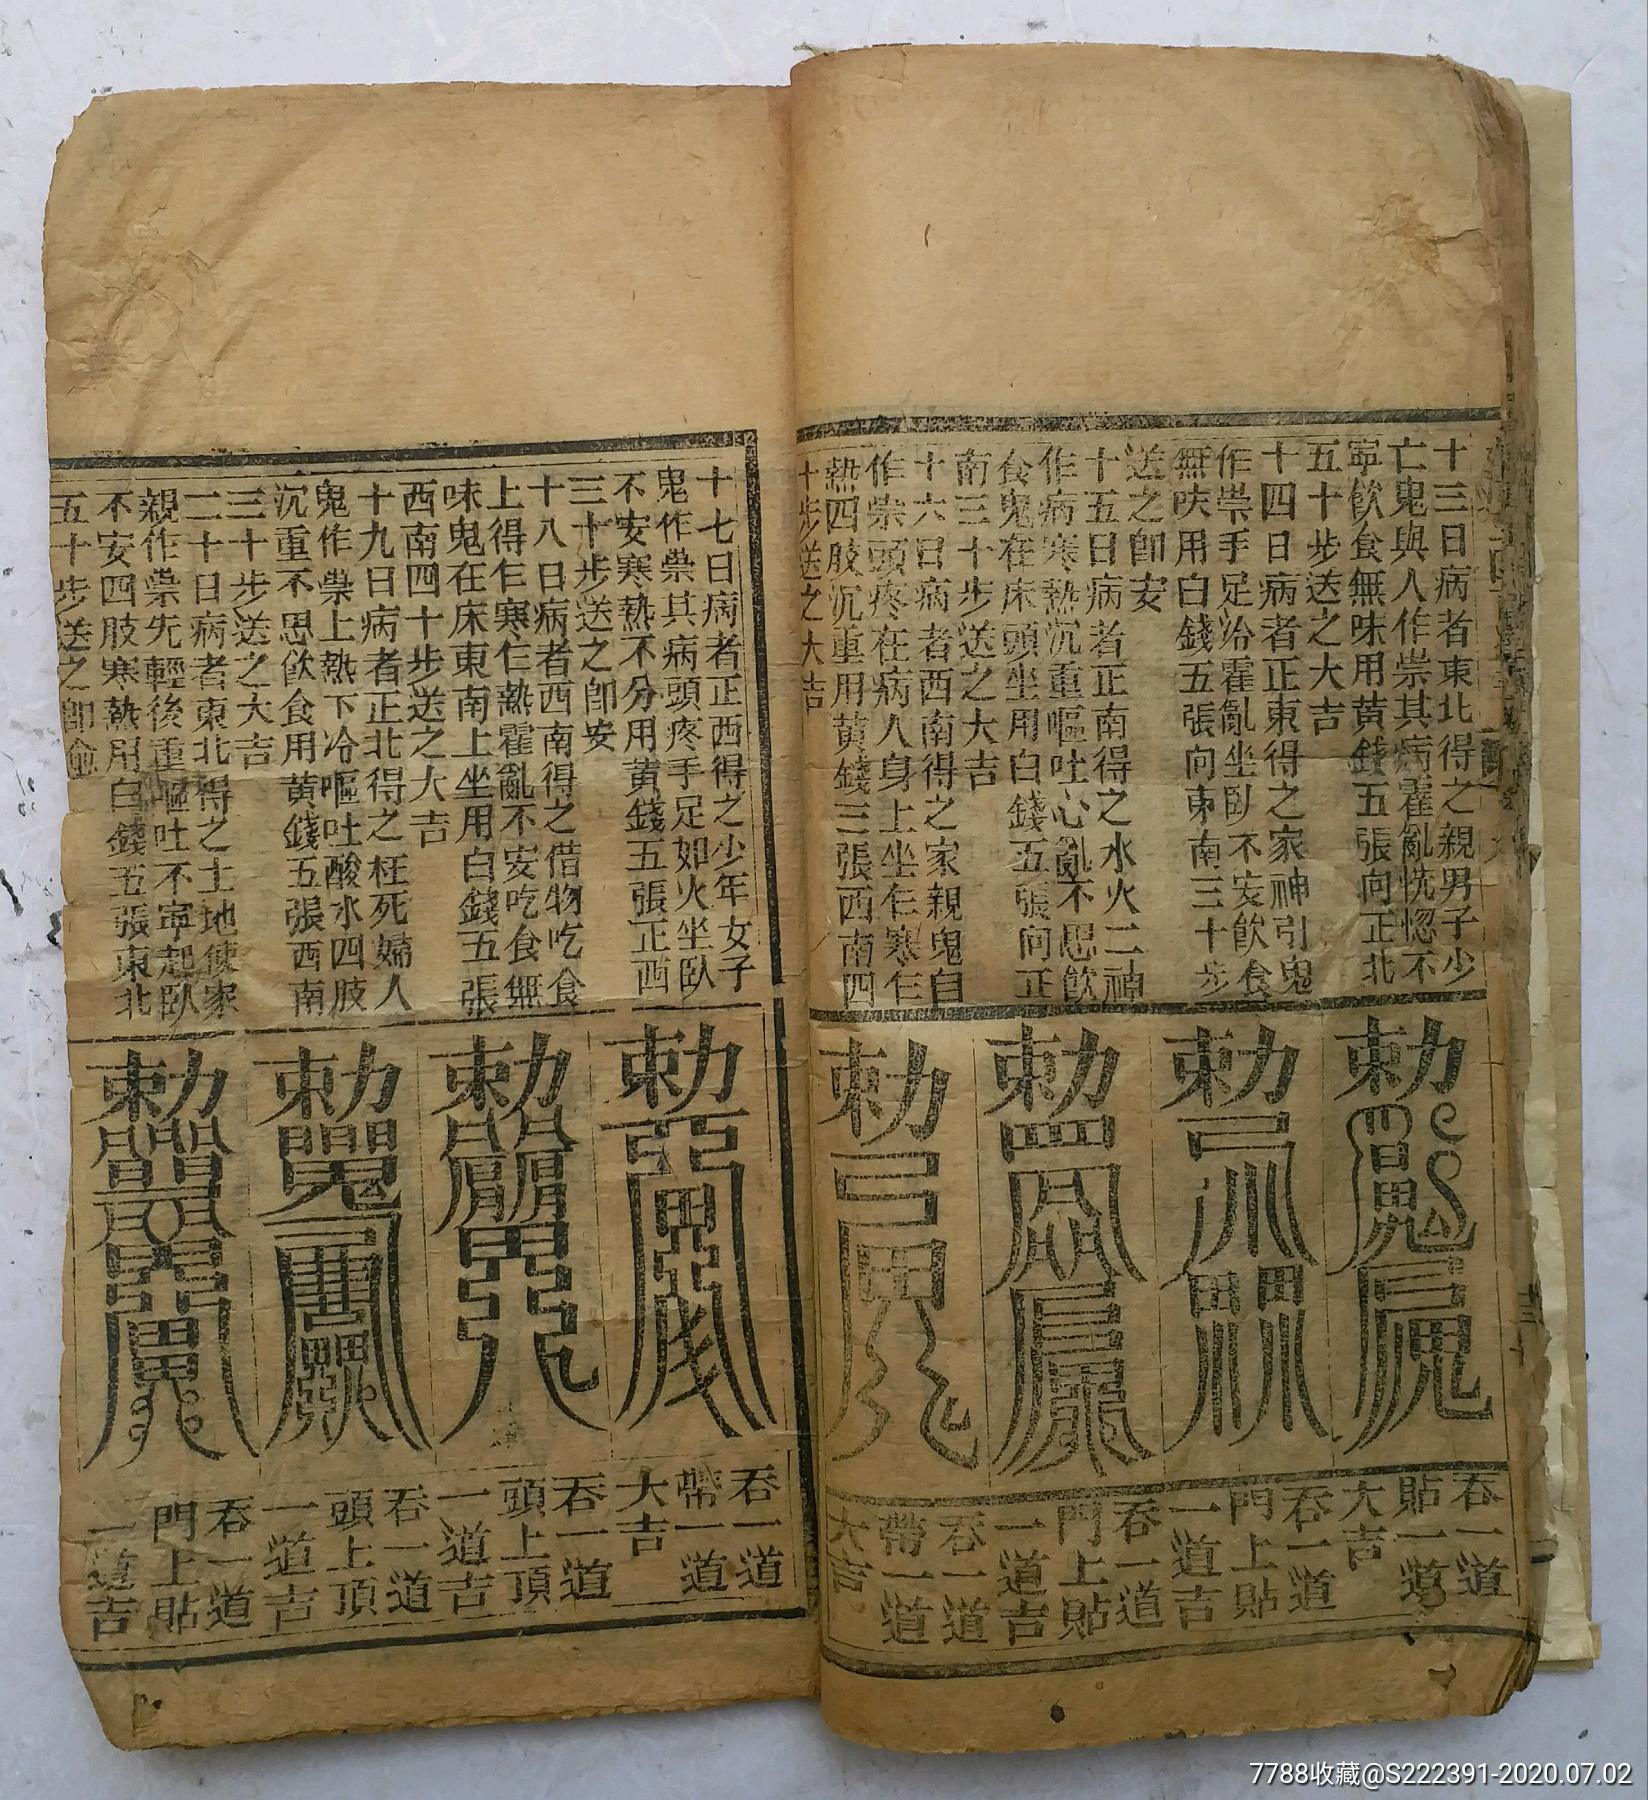 十三日病者東北得之親男子少
亡鬼與人作祟其病霍亂恍惚不
寧飲食無味用黃錢五張向正北
五十步送之大吉
十四日病者正東得之家神引鬼
作祟手足冷霍亂坐卧不安飲食
無味用白錢五張向東南三十步
送之即安
十五日病者正南得之水火二神
作病寒熱沉重嘔吐心亂不思飲
食鬼在床頭坐用白錢五張向正
南三十步送之大吉
十六日病者西南得之家親鬼自
作祟頭疼在病人身上坐乍寒乍
熱四肢沉重用黃錢三張西南四
十步送之大吉
勅
勅
勅
勅
吞一道
貼一道
大吉
吞一道
門上貼
一道吉
吞一道
門上貼
一道吉
吞一道
帶一道
大吉
十七日病者正西得之少年女子
鬼作祟其病頭疼手足如火坐卧
不安寒熱不分用黃錢五張正西
三十步送之即安
十八日病者西南得之借物吃食
上得乍寒乍熱霍亂不安吃食無
味鬼在床東南上坐用白錢五張
西南四十步送之大吉
十九日病者正北得之枉死婦人
鬼作祟上熱下冷嘔吐酸水四肢
沉重不思飲食用黃錢五張西南
三十步送之大吉
二十日病者東北得之土地使家
親作祟先輕後重嘔吐不寧起卧
不安四肢寒熱用白錢五張東北
五十步送之即愈
勅
勅
勅
勅
吞一道
帶一道
大吉
吞一道
頭上頂
一道吉
吞一道
頭上頂
一道吉
吞一道
門上貼
一道吉
7788收藏@S222391-2020.07.02